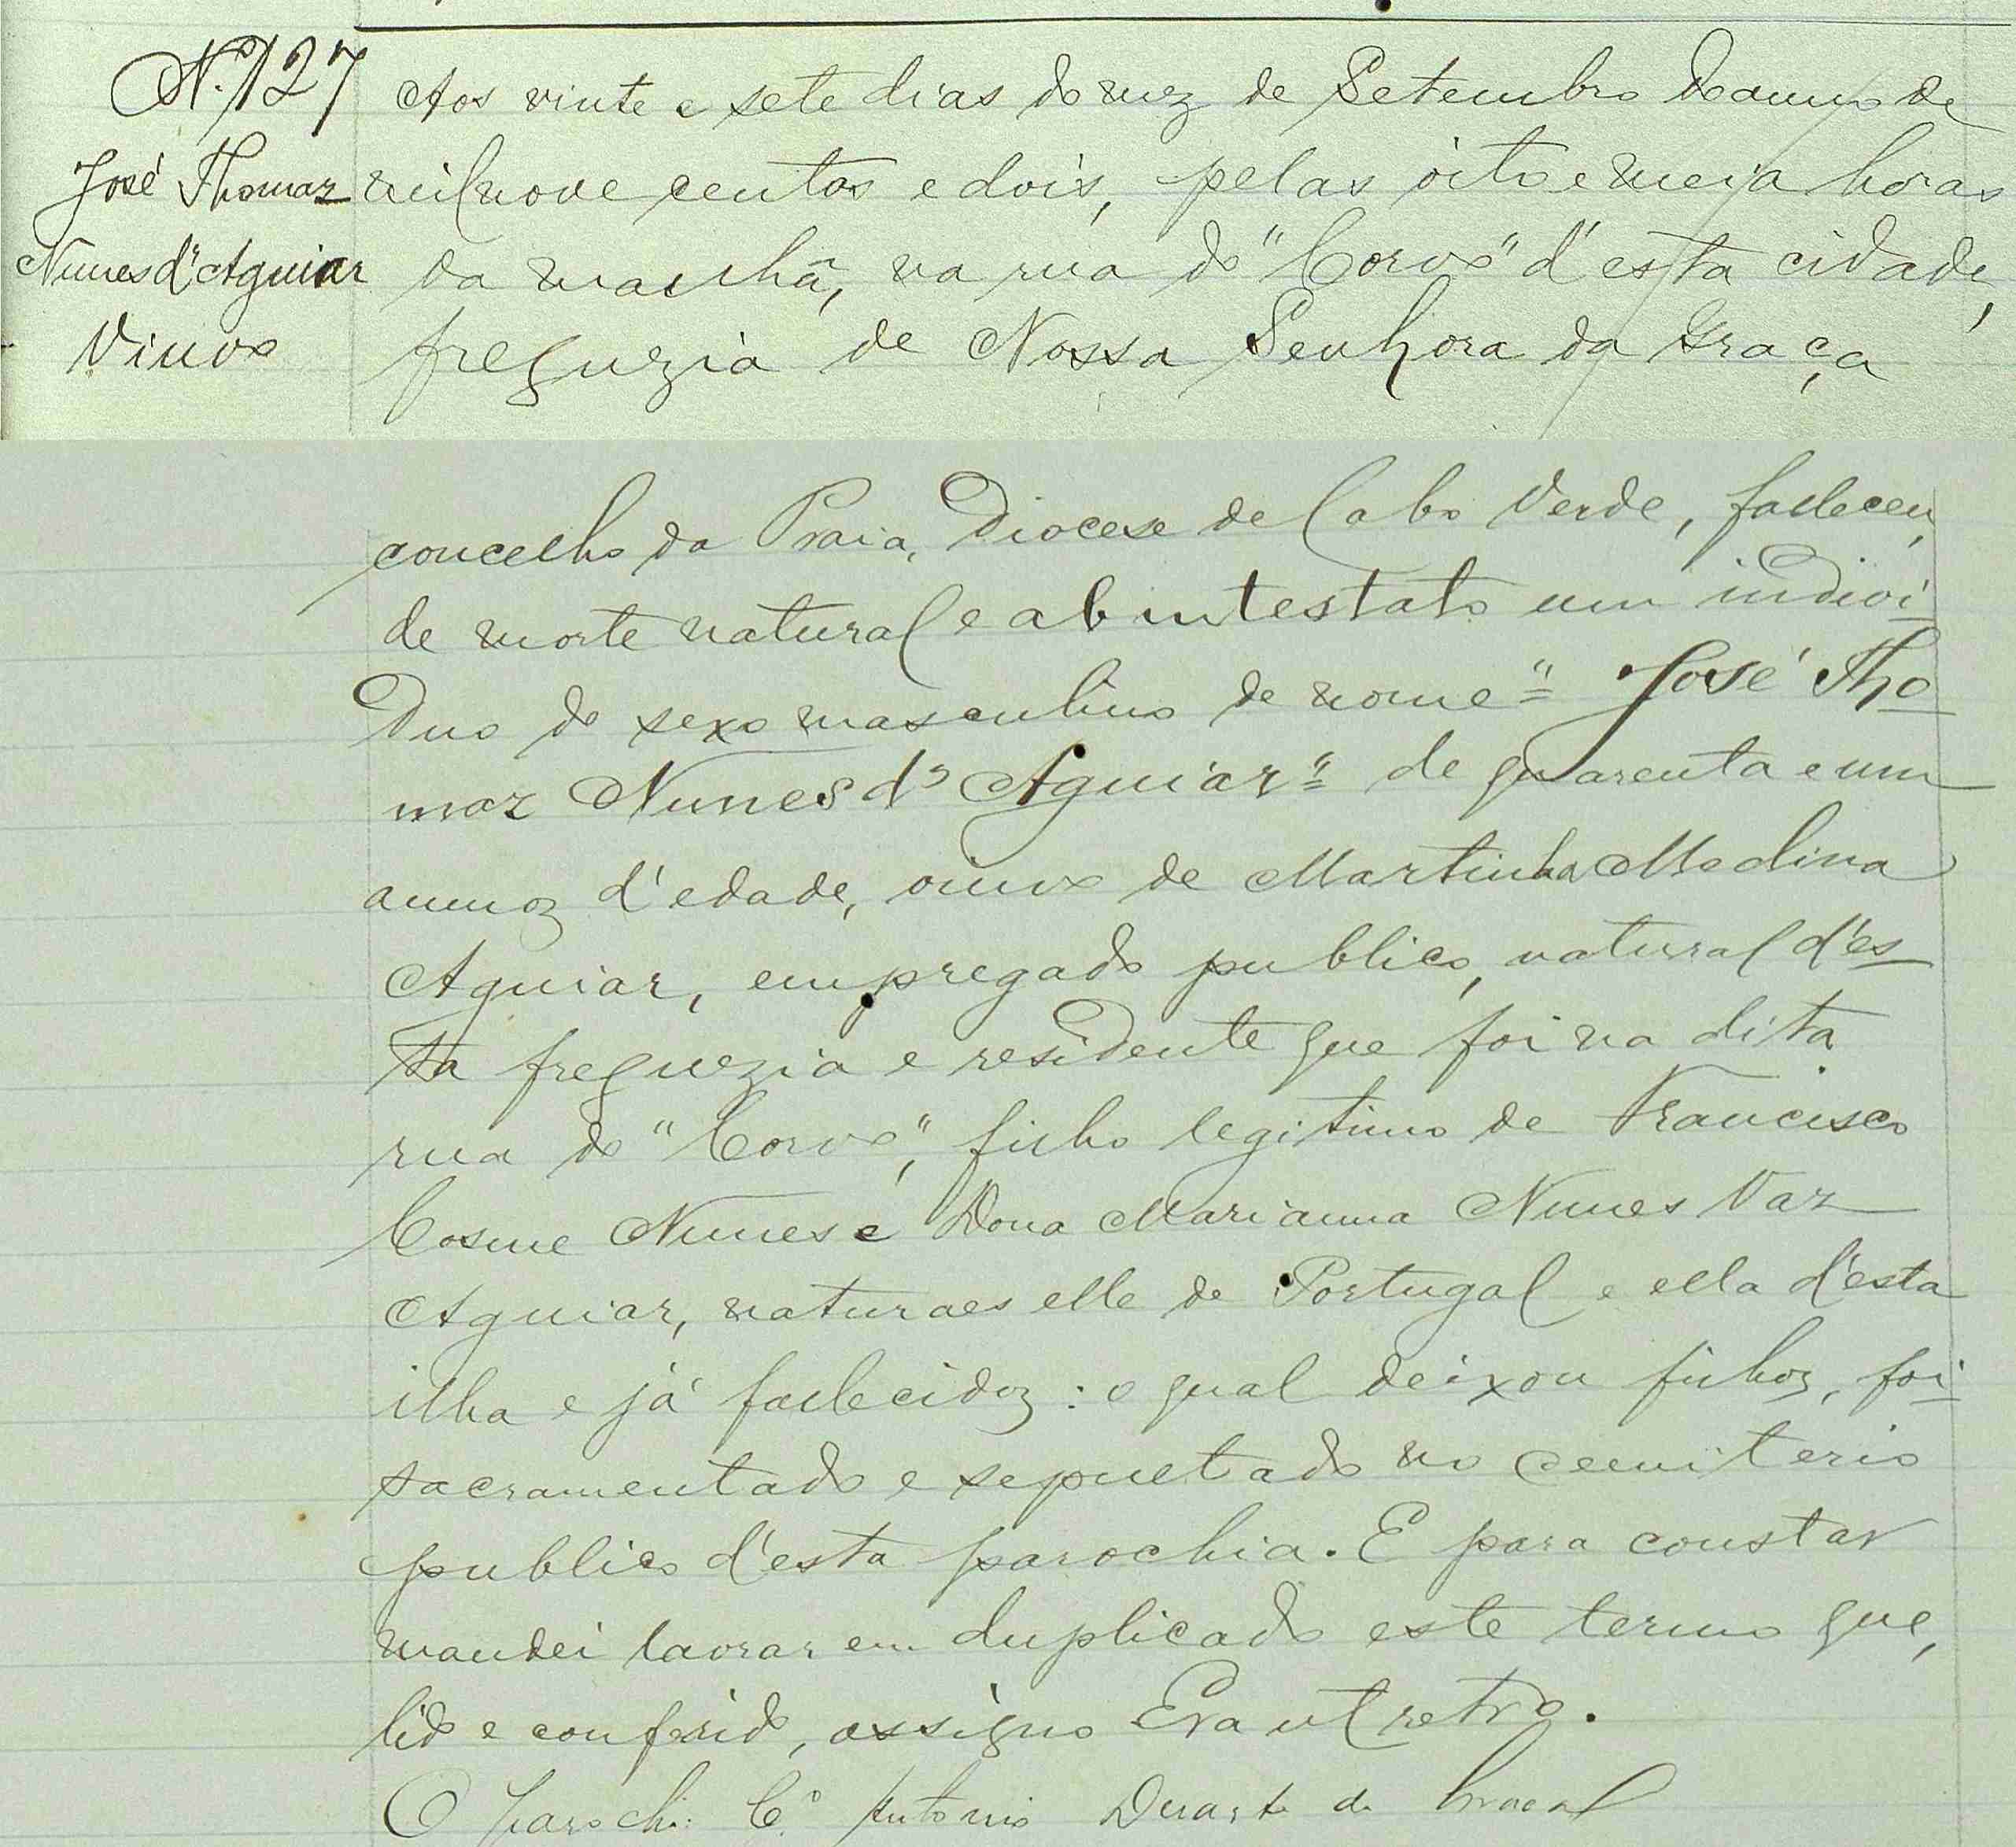 N.º 127
José Thomaz
Nunes d'Aguiar
Viuvo
Aos vinte e sete dias do mez de Setembro do anno de
mil nove centos e dois, pelas oito e meia horas
da manhã, na rua do "Corvo" d'esta cidade,
freguezia de Nossa Senhora da Graça
concelho da Praia, Diocese de Cabo Verde, falleceu,
de morte natural e abintestato um indivi-
duo do sexo masculino de nome "José Tho-
maz Nunes d'Aguiar" de quarenta e um
annos d'edade, viuvo de Martinha Medina
Aguiar, empregado publico, natural d'es-
ta freguezia e residente que foi na dita
rua do "Corvo", filho legitimo de Francisco
Cosme Nunes e Dona Marianna Nunes Vaz
Aguiar, naturaes elle de Portugal e ella d'esta
ilha e já fallecidos: o qual deixou filhos, foi
sacramentado e sepultado no cemiterio
publico d'esta parochia. E para constar
mandei lavrar em duplicado este termo que,
lido e conferido, assigno Era ut retro.
O Parocho: C.º Antonio Duarte da Graça